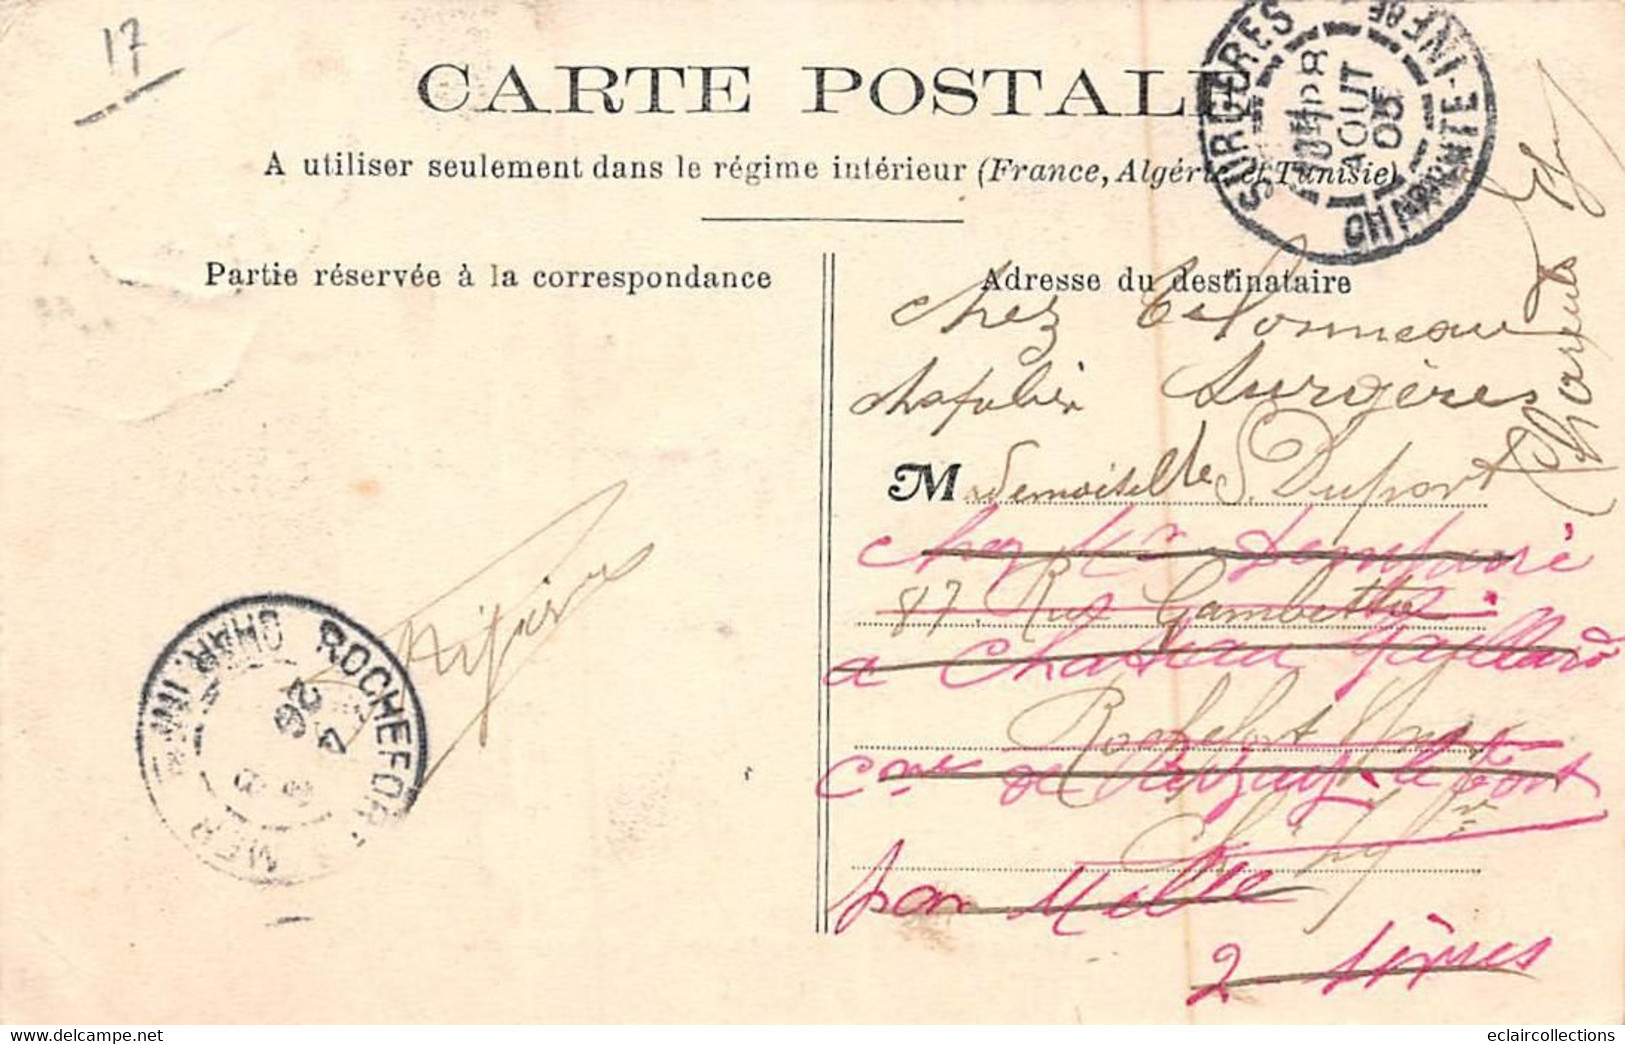 17
CARTE POSTALE
A utiliser seulement dans le régime intérieur (France, Algérie et Tunisie)
SURGÈRES
8
AOUT
05
CHARENTE-INFRE
Partie réservée à la correspondance
Adresse du destinataire
chez
Surgères
Charente
Mademoiselle S. Duport
chez Mr
87 Rue Gambetta
a Chateau Gaillard
Rochefort
Cne de le Port
par Melle
2 Sèvres
ROCHEFORT
MER
CHAR. INFRE
eclaircollections